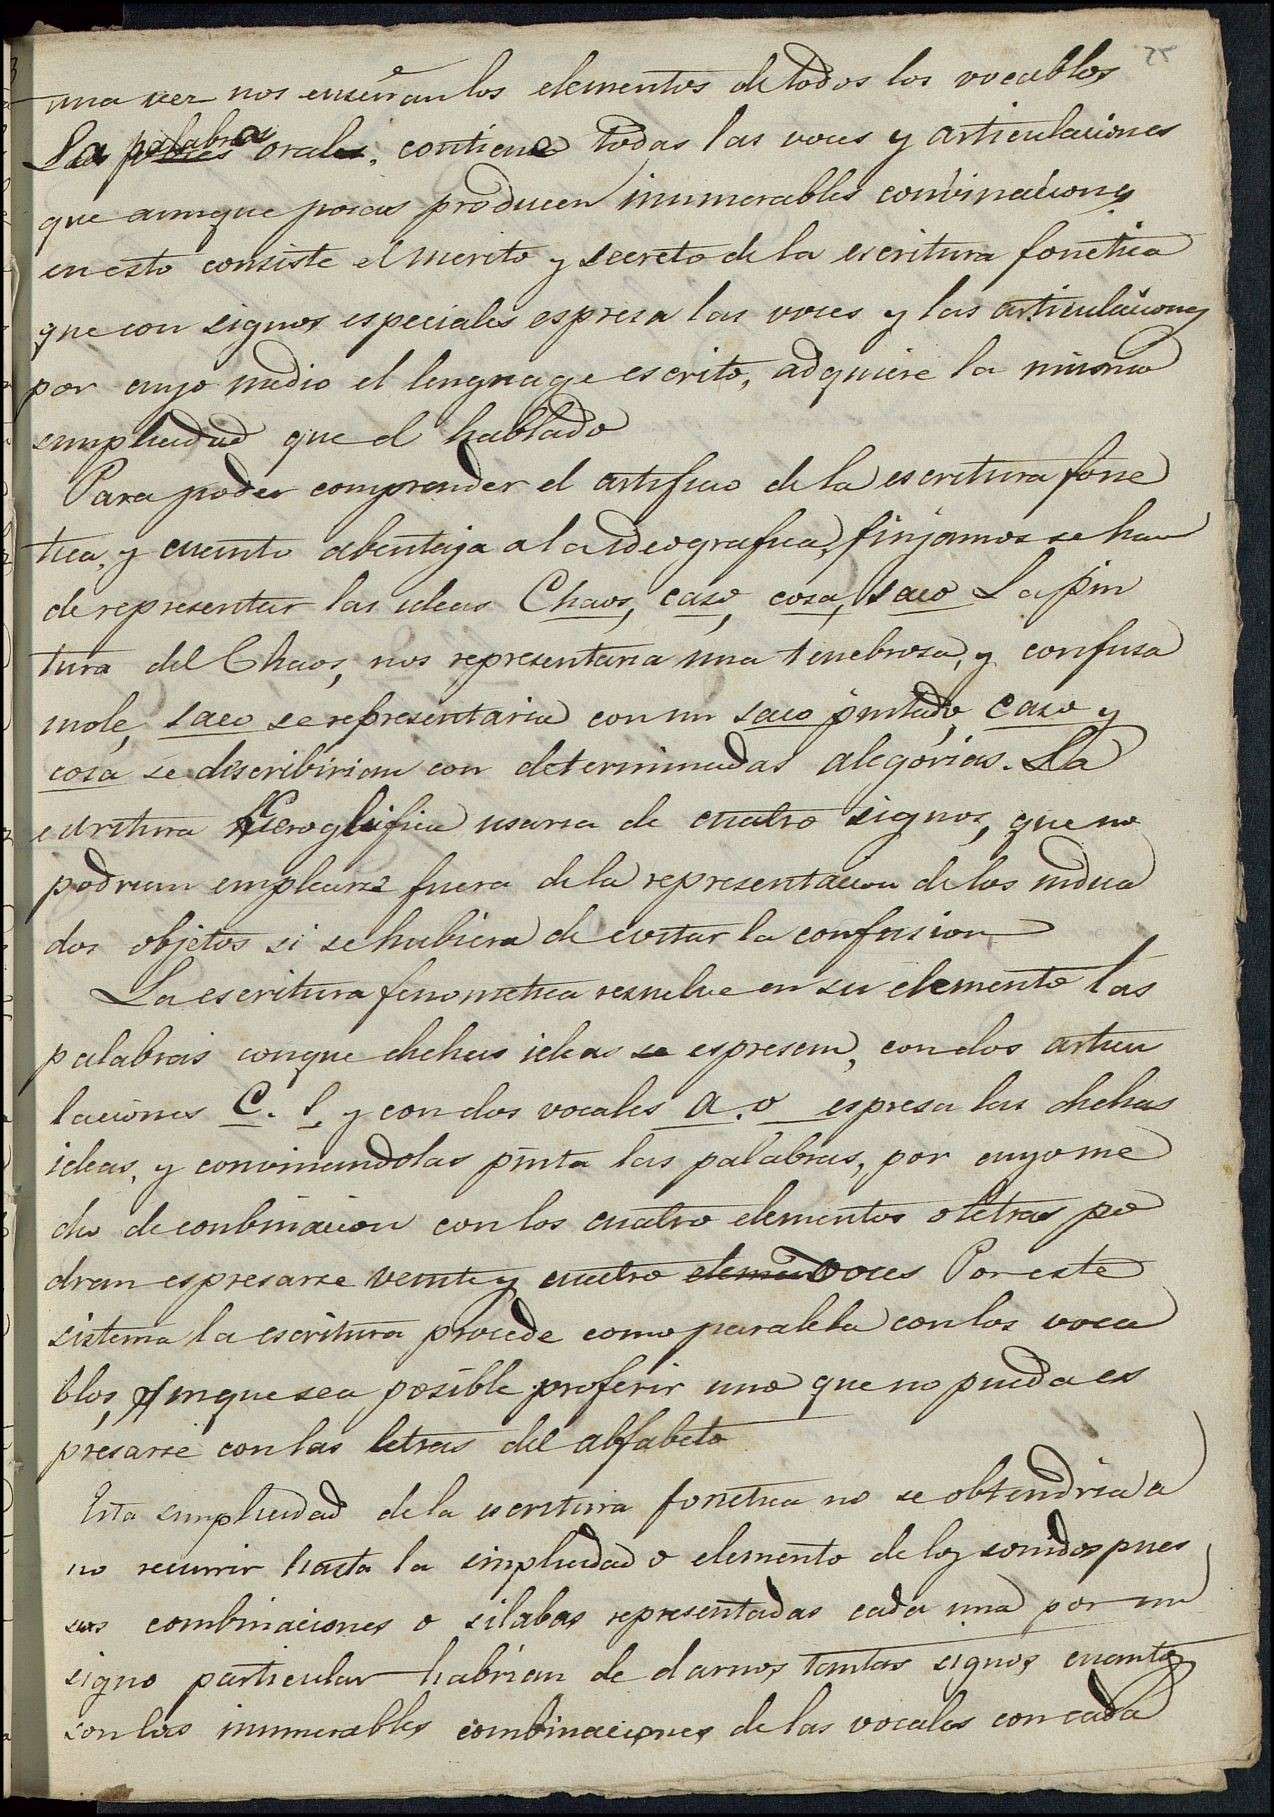 75
una vez nos enseñan los elementos de todos los vocablos
La palabra oral, contiene todas las voces y articulaciones
que aunque pocas producen inumerables convinaciones
en esto consiste el merito y secreto de la escritura fonetica
que con signos especiales espresa las voces y las articulaciones
por cuyo medio el lenguage escrito, adquiere la misma
simplicidad que el hablado
Para poder comprender el artificio de la escritura fone
tica, y cuanto abentaja a la ideografica, finjamos se han
de representar las ideas Chaos, caso, cosa, saco La pin
tura del Chaos, nos representaria una tenebrosa, y confusa
mole, saco se representaria con un saco pintado, caso y
cosa se describirian con determinadas alegorias. La
escritura Geroglifica usaria de cuatro signos, que no
podrian emplearse fuera de la representacion de los indica
dos objetos si se hubiera de evitar la confusion
La escritura fonometica resuelve en su elemento las
palabras conque dichas ideas se espresan, con dos articu
laciones C. s, y con dos vocales a. o espresa las dichas
ideas, y convinandolas pinta las palabras, por cuyo me
dio de conbinacion con los cuatro elementos o letras po
dran espresarse veinte y cuatro voces Por este
sistema la escritura procede como paralela con los voca
blos, sin que sea posible proferir uno que no pueda es
presarse con las letras del alfabeto
Esta simplicidad de la escritura fonetica no se obtendria a
no recurrir hasta la simplicidad o elemento de los sonidos pues
sus combinaciones o silabas representadas cada una por un
signo particular habrian de darnos tantos signos cuantos
son las inumerables combinaciones de las vocales con cada